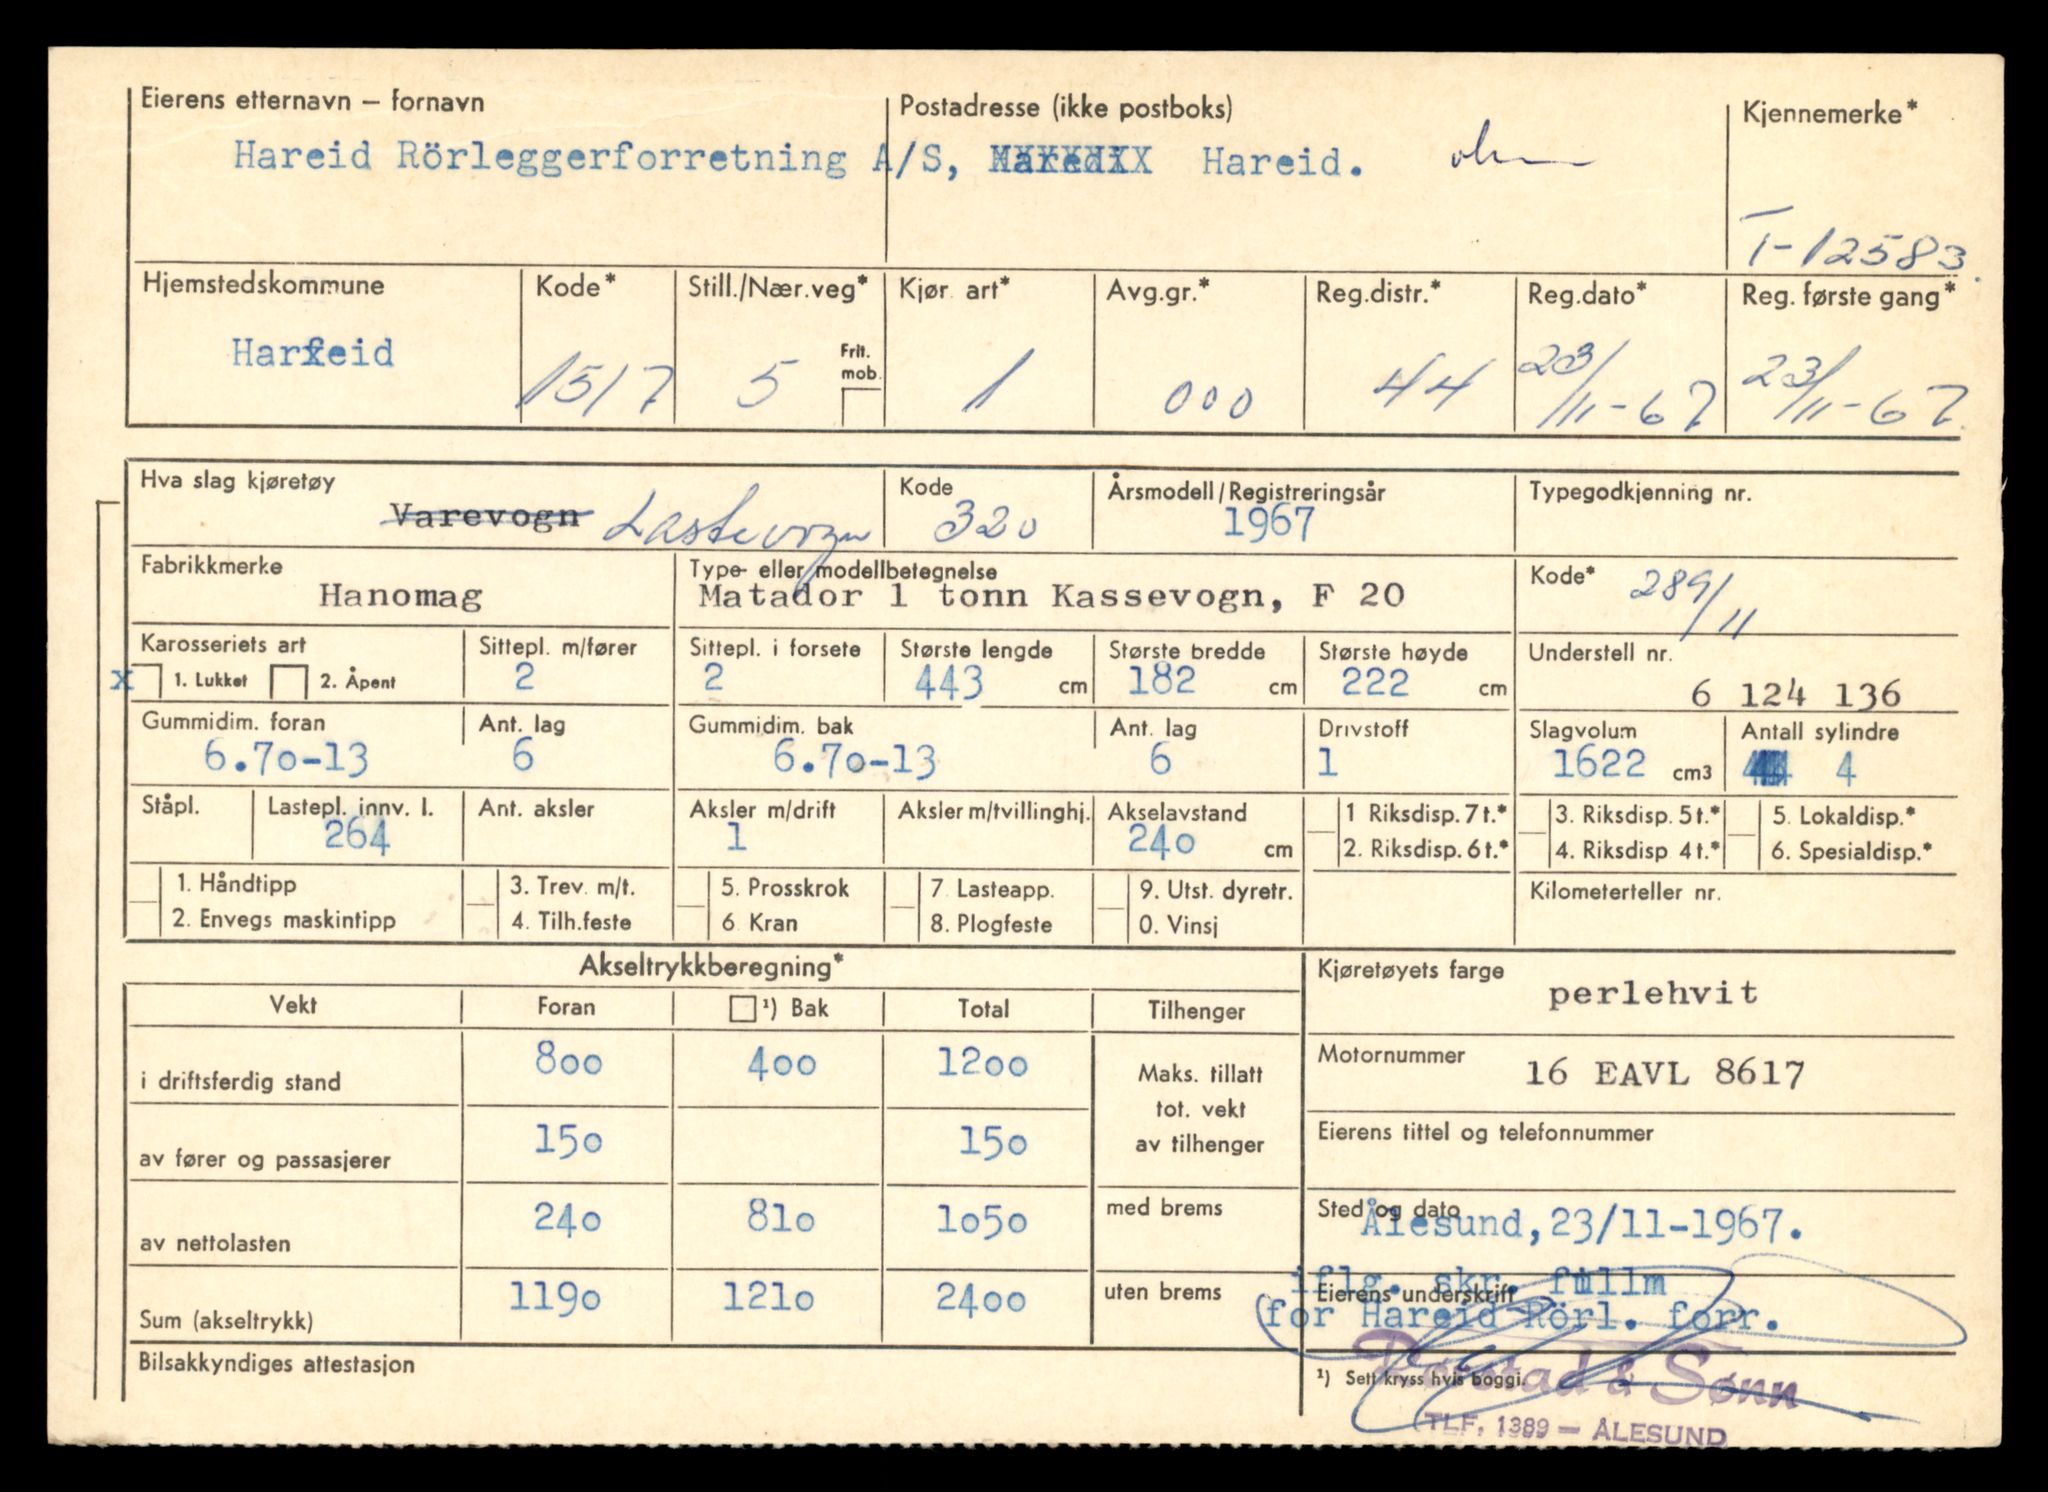 Eierens etternavn – fornavn
Postadresse (ikke postboks)
Kjennemerke*
Hareid Rörleggerforretning A/S, Hareid.
T-12583
Hjemstedskommune
Kode*
Still./Nær.veg*
Kjør. art*
Avg.gr.*
Reg.distr.*
Reg.dato*
Reg. første gang*
Hareid
1517
5
Frit. mob.
1
000
44
23/11-67
23/11-67
Hva slag kjøretøy
Varevogn Lastevogn
Kode
320
Årsmodell/Registreringsår
1967
Typegodkjenning nr.
Fabrikkmerke
Hanomag
Type- eller modellbetegnelse
Matador 1 tonn Kassevogn, F 20
Kode*
289/11
Karosseriets art
x 1. Lukket 2. Åpent
Sittepl. m/fører
2
Sittepl. i forsete
2
Største lengde
443 cm
Største bredde
182 cm
Største høyde
222 cm
Understell nr.
6 124 136
Gummidim. foran
6.70-13
Ant. lag
6
Gummidim. bak
6.70-13
Ant. lag
6
Drivstoff
1
Slagvolum
1622 cm3
Antall sylindre
4
Ståpl.
Lastepl. innv. l.
264
Ant. aksler
Aksler m/drift
1
Aksler m/tvillinghj.
Akselavstand
240 cm
1 Riksdisp. 7 t.*
2. Riksdisp. 6 t.*
3. Riksdisp. 5 t.*
4. Riksdisp 4 t.*
5. Lokaldisp.*
6. Spesialdisp.*
1. Håndtipp
2. Envegs maskintipp
3. Trev. m/t.
4. Tilh.feste
5. Prosskrok
6 Kran
7. Lasteapp.
8. Plogfeste
9. Utst. dyretr.
0. Vinsj
Kilometerteller nr.
Akseltrykkberegning*
Vekt
Foran
¹) Bak
Total
Tilhenger
i driftsferdig stand
800 400 1200
av fører og passasjerer
150 150
av nettolasten
240 810 1050
Sum (akseltrykk)
1190 1210 2400
Maks. tillatt
tot. vekt
av tilhenger
med brems
uten brems
Bilsakkyndiges attestasjon
Kjøretøyets farge
perlehvit
Motornummer
16 EAVL 8617
Eierens tittel og telefonnummer
Sted og dato
Ålesund, 23/11-1967.
iflg. skr. fullm
Eierens underskrift
for Hareid Rörl. forr.
¹) Sett kryss hvis boggi.
& Sønn
TLF. 1389 — ÅLESUND